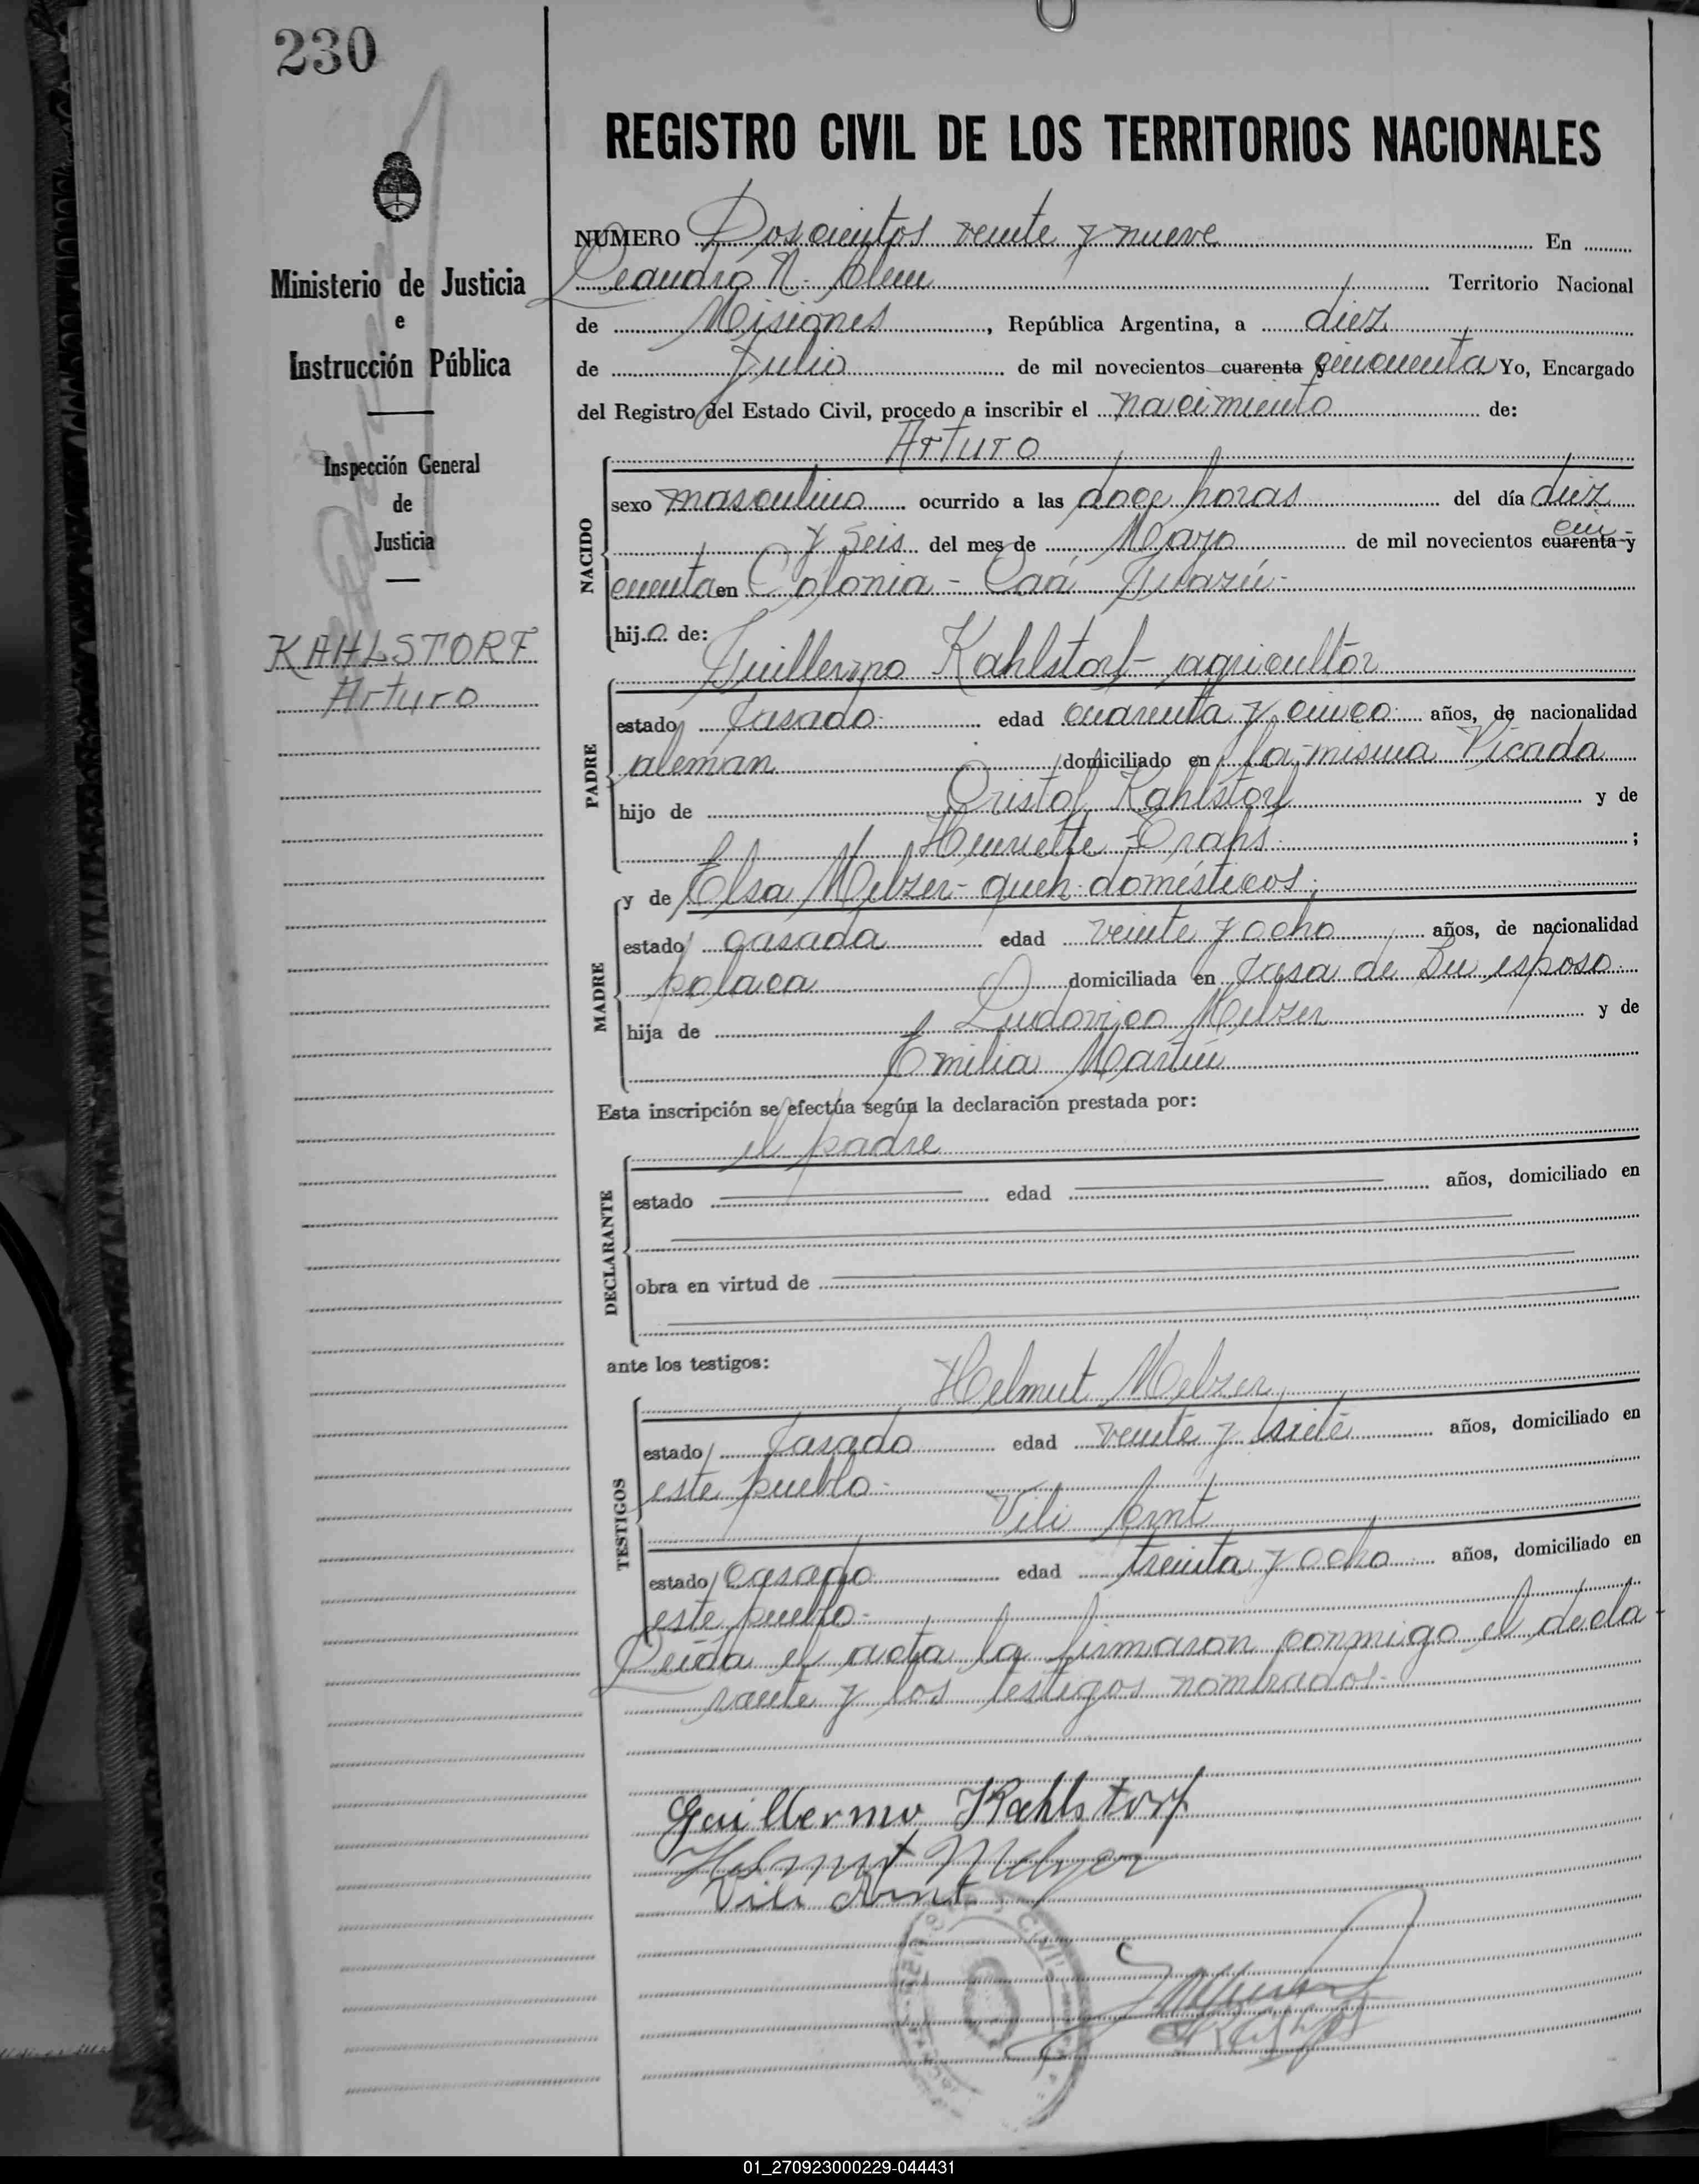 230
REGISTRO CIVIL DE LOS TERRITORIOS NACIONALES
Ministerio de Justicia
e
Instrucción Pública
Inspección General
de
Justicia
KAHLSTORF
Arturo
NUMERO Doscientos veinte y nueve En
Leandro N. Alem Territorio Nacional
de Misiones, República Argentina, a diez
de Julio de mil novecientos cuarenta y cincuenta Yo, Encargado
del Registro del Estado Civil, procedo a inscribir el nacimiento de:
Arturo
NACIDO
sexo masculino ocurrido a las doce horas del día diez
y seis del mes de Mayo de mil novecientos cuarenta y cin-
cuenta en Colonia - Caá Guazú-
hijo de:
Guillermo Kahlstorf - agricultor
PADRE
estado casado edad cuarenta y cinco años, de nacionalidad
aleman domiciliado en la misma Picada
hijo de Cristof Kahlstorf y de
Henriette ;
y de Elsa Melzer- queh. domésticos;
MADRE
estado casada edad veinte y ocho años, de nacionalidad
polaca domiciliada en casa de su esposo
hija de Ludovico Melzer y de
Emilia Martin
Esta inscripción se efectúa según la declaración prestada por:
el padre
DECLARANTE
estado edad años, domiciliado en
obra en virtud de
ante los testigos:
Helmut Melzer
TESTIGOS
estado casado edad veinte y siete años, domiciliado en
este pueblo.
Vili Arnt
estado casado edad treinta y ocho años, domiciliado en
este pueblo.-
Leída el acta la firmaron conmigo el decla-
rante y los testigos nombrados.
Guillermo Kahlstorf
Helmut Melzer
Vili Arnt
01_270923000229-044431